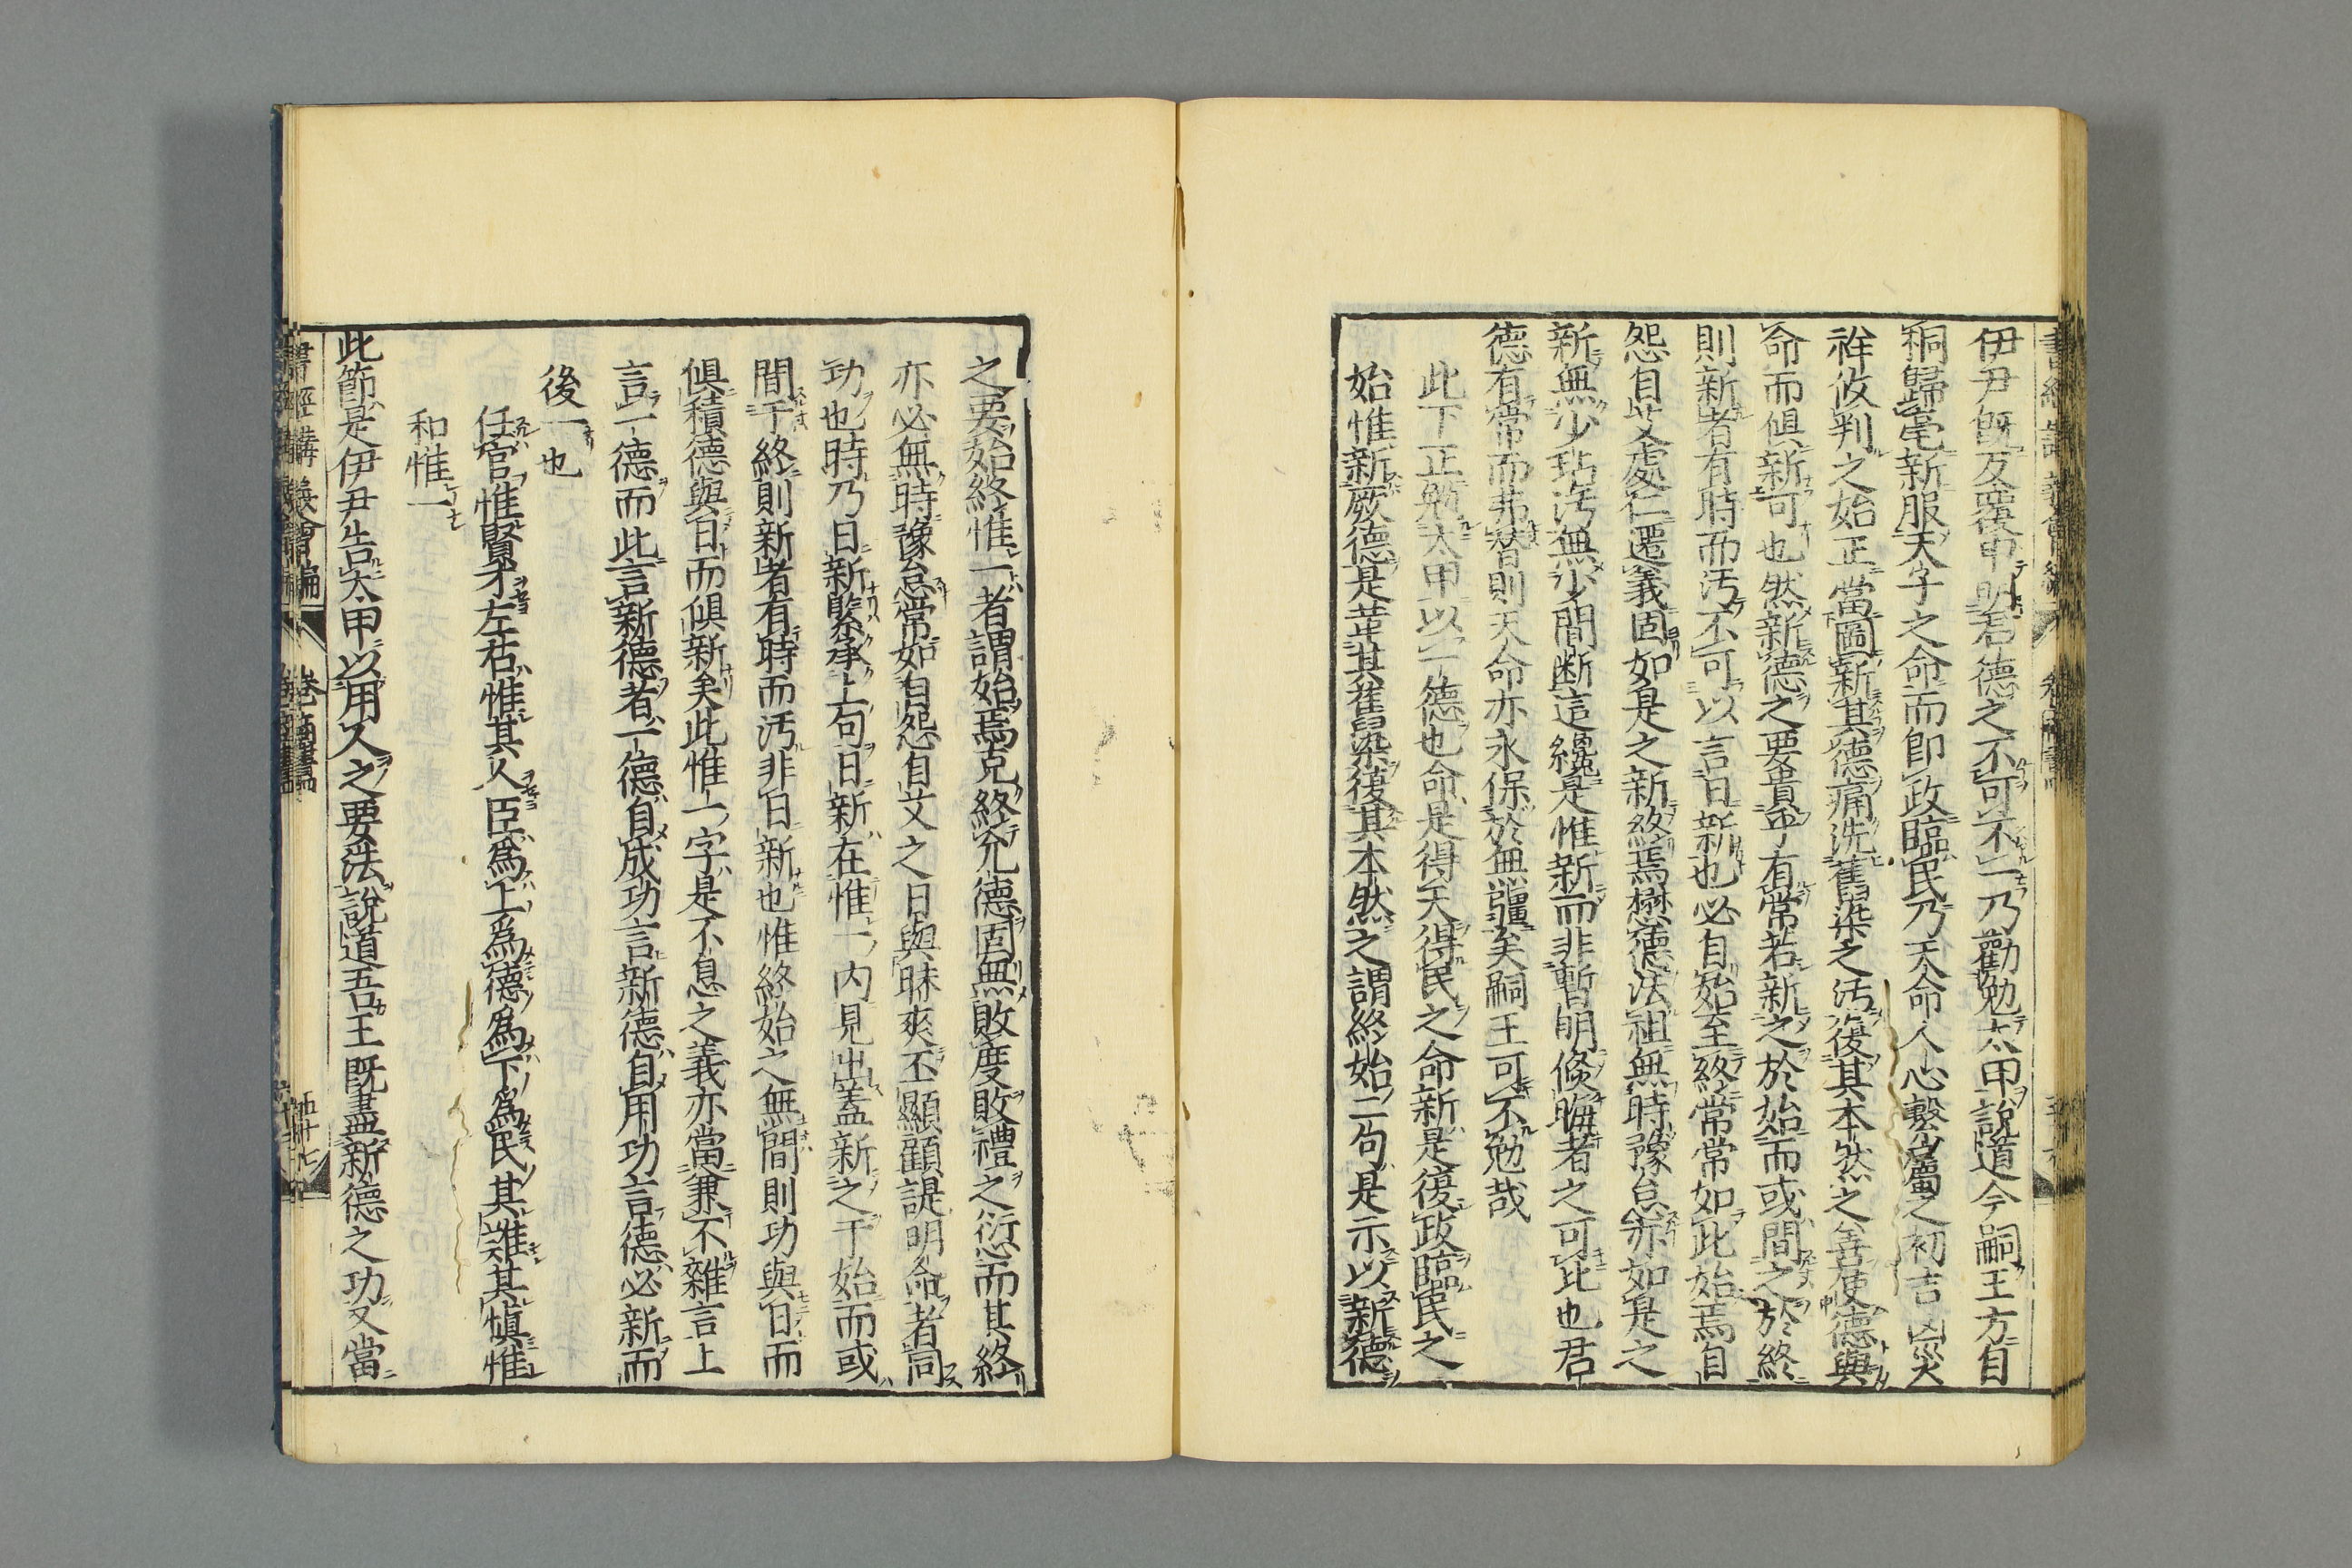 伊尹既反覆申明君德之不可不一乃勸勉太甲說道今嗣王方自
桐歸亳新服天子之命而卽政臨民乃天命人心繫屬之初吉凶災
祥攸判之始正當圖新其德痛洗舊染之汚復其本然之善使德與
命而俱新可也然新德之要貴乎有常若新之於始而或間之於終
則新者有時而汚不可以言日新也必自始至終常常如此始焉自
怨自艾處仁遷義固如是之新終焉懋德法祖無時豫怠亦如是之
新無少玷汚無少間断這纔是惟新而非暫明倐晦者之可比也君
德有常而弗替則天命亦永保於無疆矣嗣王可不勉哉
此下正勉太甲以一德也命是得天得民之命新是復政臨民之
始惟新厥德是昔其舊染復其本然之謂終始二句是示以新德
之要始終惟一者謂始焉克終允德固無敗度敗禮之衍而其終
亦必無時豫怠常如自怨自艾之日與昧爽丕顯顧諟明命者同
功也時乃日新緊承上句日新在惟一內見出蓋新之于始而或
間于終則新者有時而汚非日新也惟終始之無間則功與日而
俱積德與日而俱新矣此惟一字是不息之義亦當兼不雜言上
言一德而此言新德者一德自成功言新德自用功言德必新而
後一也
任官惟賢才左右惟其人臣爲上爲德爲下爲民其難其愼惟
和惟一
此節是伊尹告太甲以用人之要法說道吾王旣盡新德之功又當
書經講義會編
卷 商書
五十七